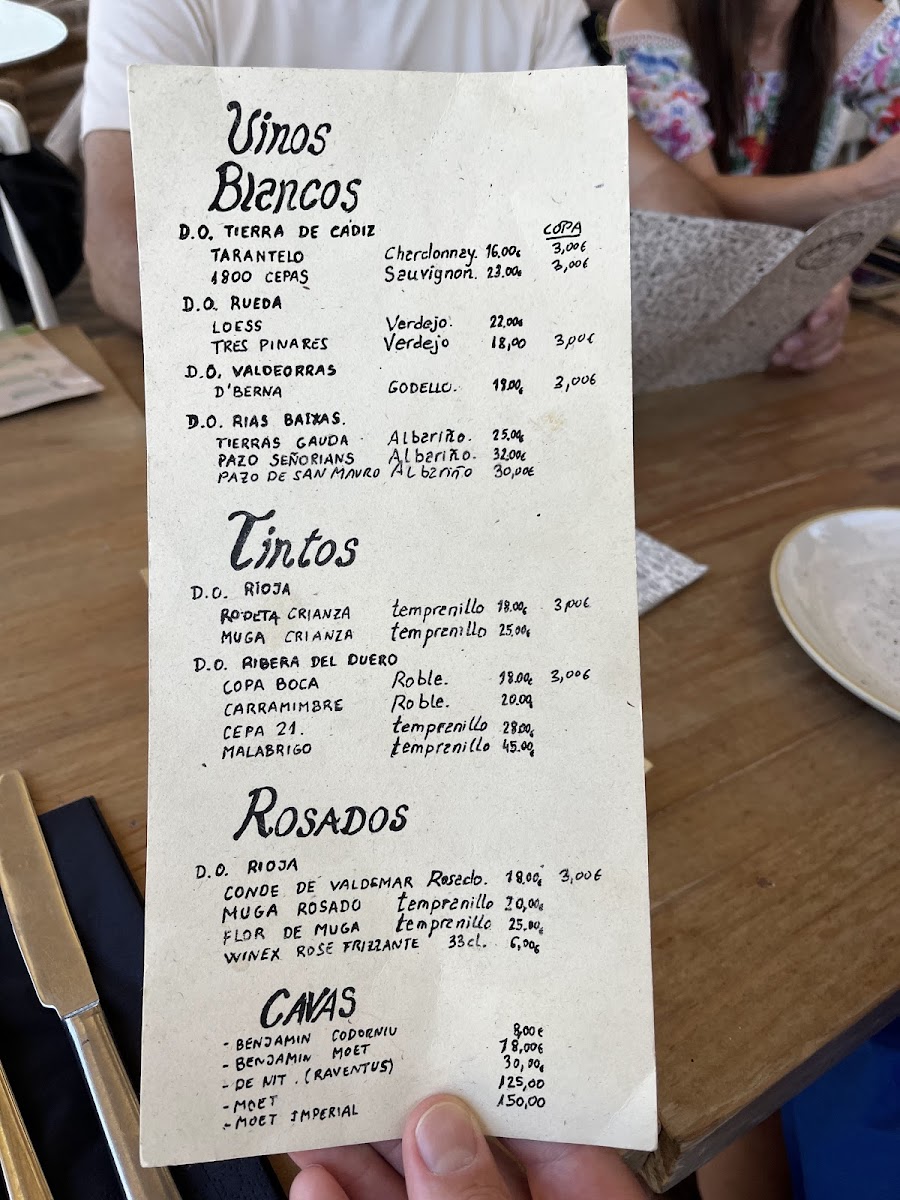 Vinos
Blancos
D.O. TIERRA DE CÁDIZ COPA
TARANTELO Chardonnay. 16.00€ 3,00€
1800 CEPAS Sauvignon. 23.00€ 3,00€
D.O. RUEDA
LOESS Verdejo. 22,00€
TRES PINARES Verdejo 18,00 3,00€
D.O. VALDEORRAS
D'BERNA GODELLO. 19.00€ 3,00€
D.O. RIAS BAIXAS.
TIERRAS GAUDA Albariño. 25.00€
PAZO SEÑORIANS Albariño. 32.00€
PAZO DE SAN MAURO Albariño 30,00€
Tintos
D.O. RIOJA
RODETA CRIANZA tempranillo 18.00€ 3,00€
MUGA CRIANZA tempranillo 25,00€
D.O. RIBERA DEL DUERO
COPA BOCA Roble. 18.00€ 3,00€
CARRAMIMBRE Roble. 20.00
CEPA 21. tempranillo 28.00€
MALABRIGO tempranillo 45.00€
ROSADOS
D.O. RIOJA
CONDE DE VALDEMAR Rosado. 18,00€ 3,00€
MUGA ROSADO tempranillo 20,00€
FLOR DE MUGA tempranillo 25.00€
WINEX ROSE FRIZZANTE 33cl. 6,00€
CAVAS
- BENJAMIN CODORNIU 8,00€
- BENJAMIN MOET 18,00€
- DE NIT . (RAVENTUS) 30,00€
- MOET 125,00
- MOET IMPERIAL 150,00